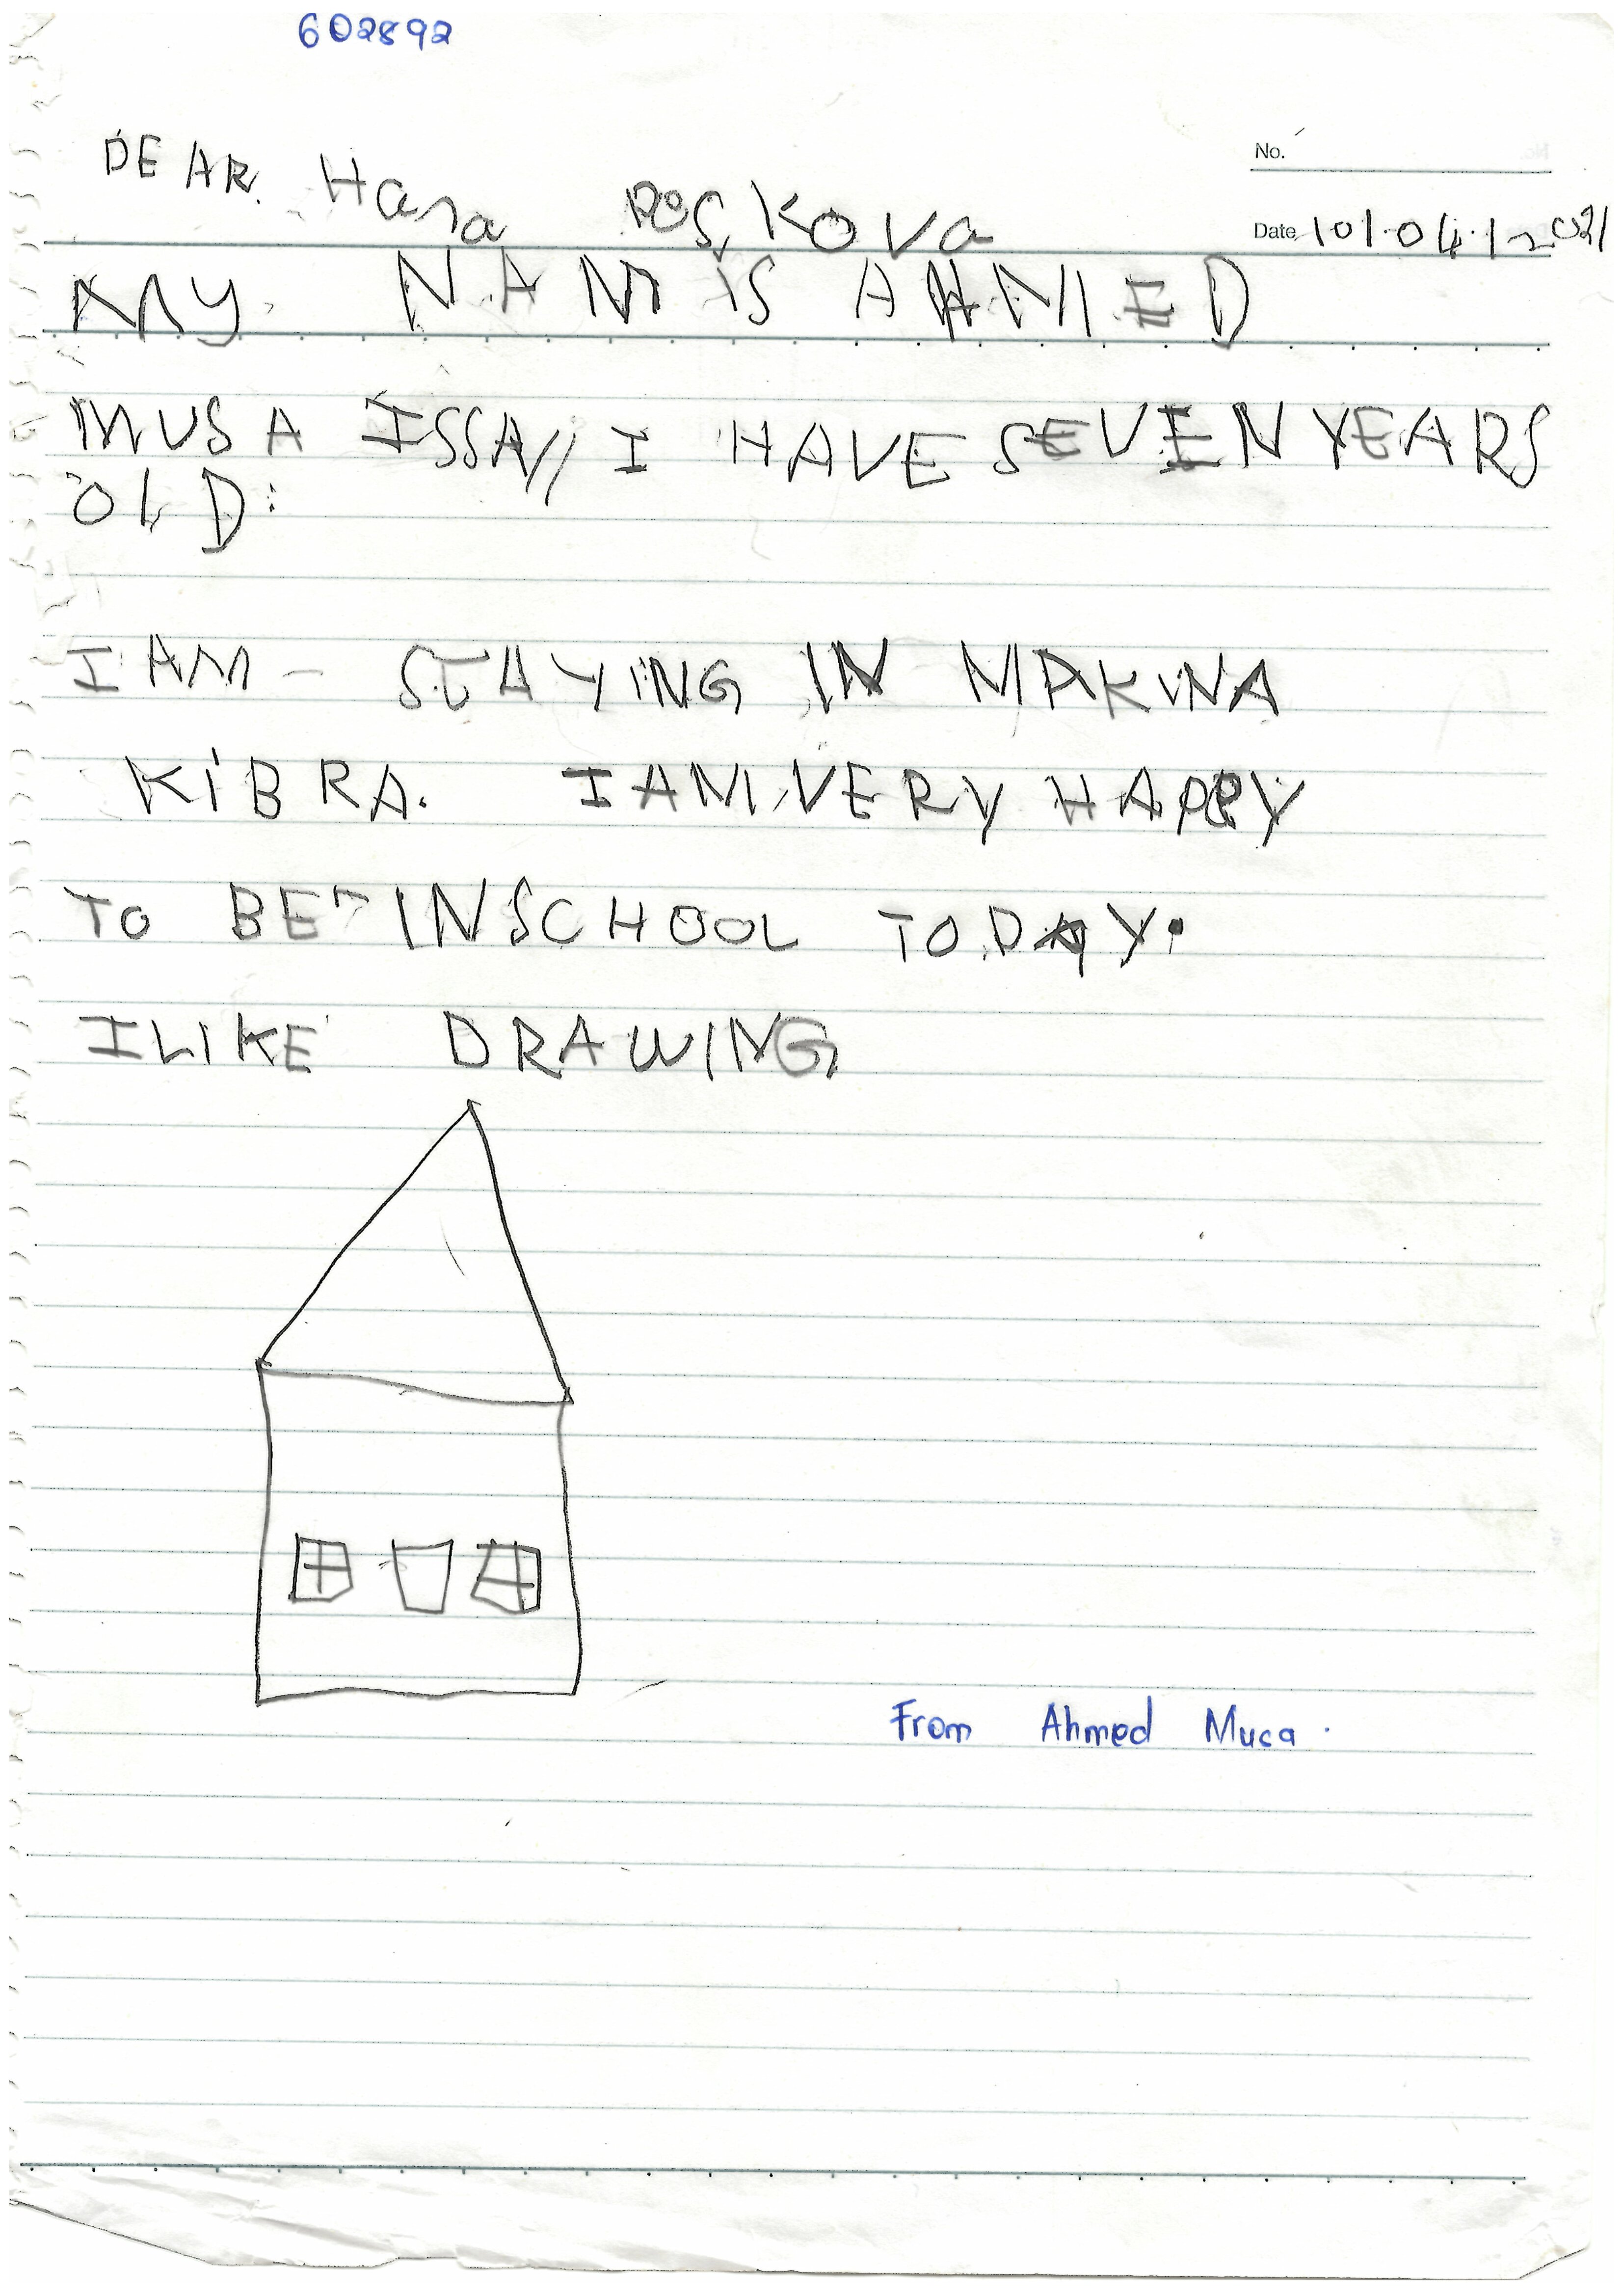 602892
No.
DEAR. Hana Roskova
Date 10/.04./2021
MY. NAM iS AHMED
MUSA ISSA// I HAVE SEVEN YEARS
OLD:
I AM - STAYING IN MAKINA
KiBRA. I AM VERY HAPPY
TO BE IN SCHOOL TODAY.
I LIKE DRAWING
From Ahmed Musa.